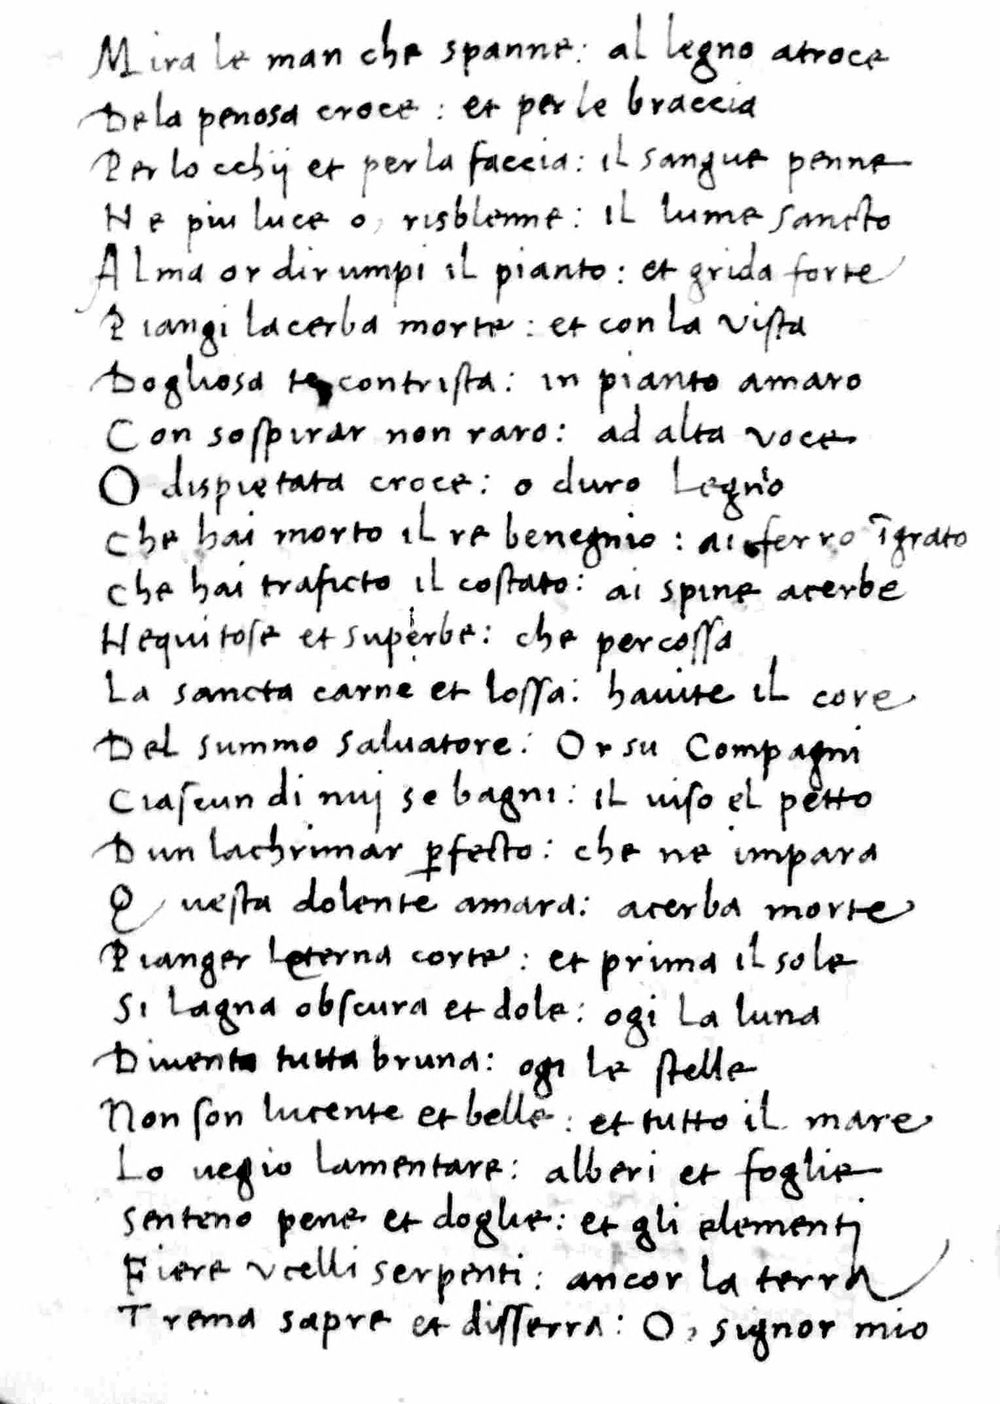 Mira le man che spanne: al legno atroce
Dela penosa croce: et per le braccia
Per lo cchij et per la faccia: il sangue penne
Ne piu luce o, risblenne: il lume sancto
Alma or dirumpi il pianto: et grida forte
Piangi lacerba morte: et con la vista
Dogliosa te contrista: in pianto amaro
Con sospirar non raro: ad alta voce
O dispietata croce: o duro legno
che hai morto il re benegnio: ai ferro īgrato
che hai traficto il costato: ai spine acerbe
Nequitose et superbe: che percossa
La sancta carne et lossa: hauite il core
Del summo saluatore: Or su Compagni
Ciascun di nuj se bagni: il uiso el petto
Dun lachrimar ꝑfecto: che ne impara
Questa dolente amara: acerba morte
Pianger leterna corte: et prima il sole
Si lagna obscura et dole: ogi la luna
Diuenta tutta bruna: ogi le stelle
Non son lucente et belle: et tutto il mare
Lo uegio lamentare: alberi et foglie
senteno pene et doglie: et gli elementj
Fiere vcelli serpenti: ancor la terra
Trema sapre et disserra: O, signor mio